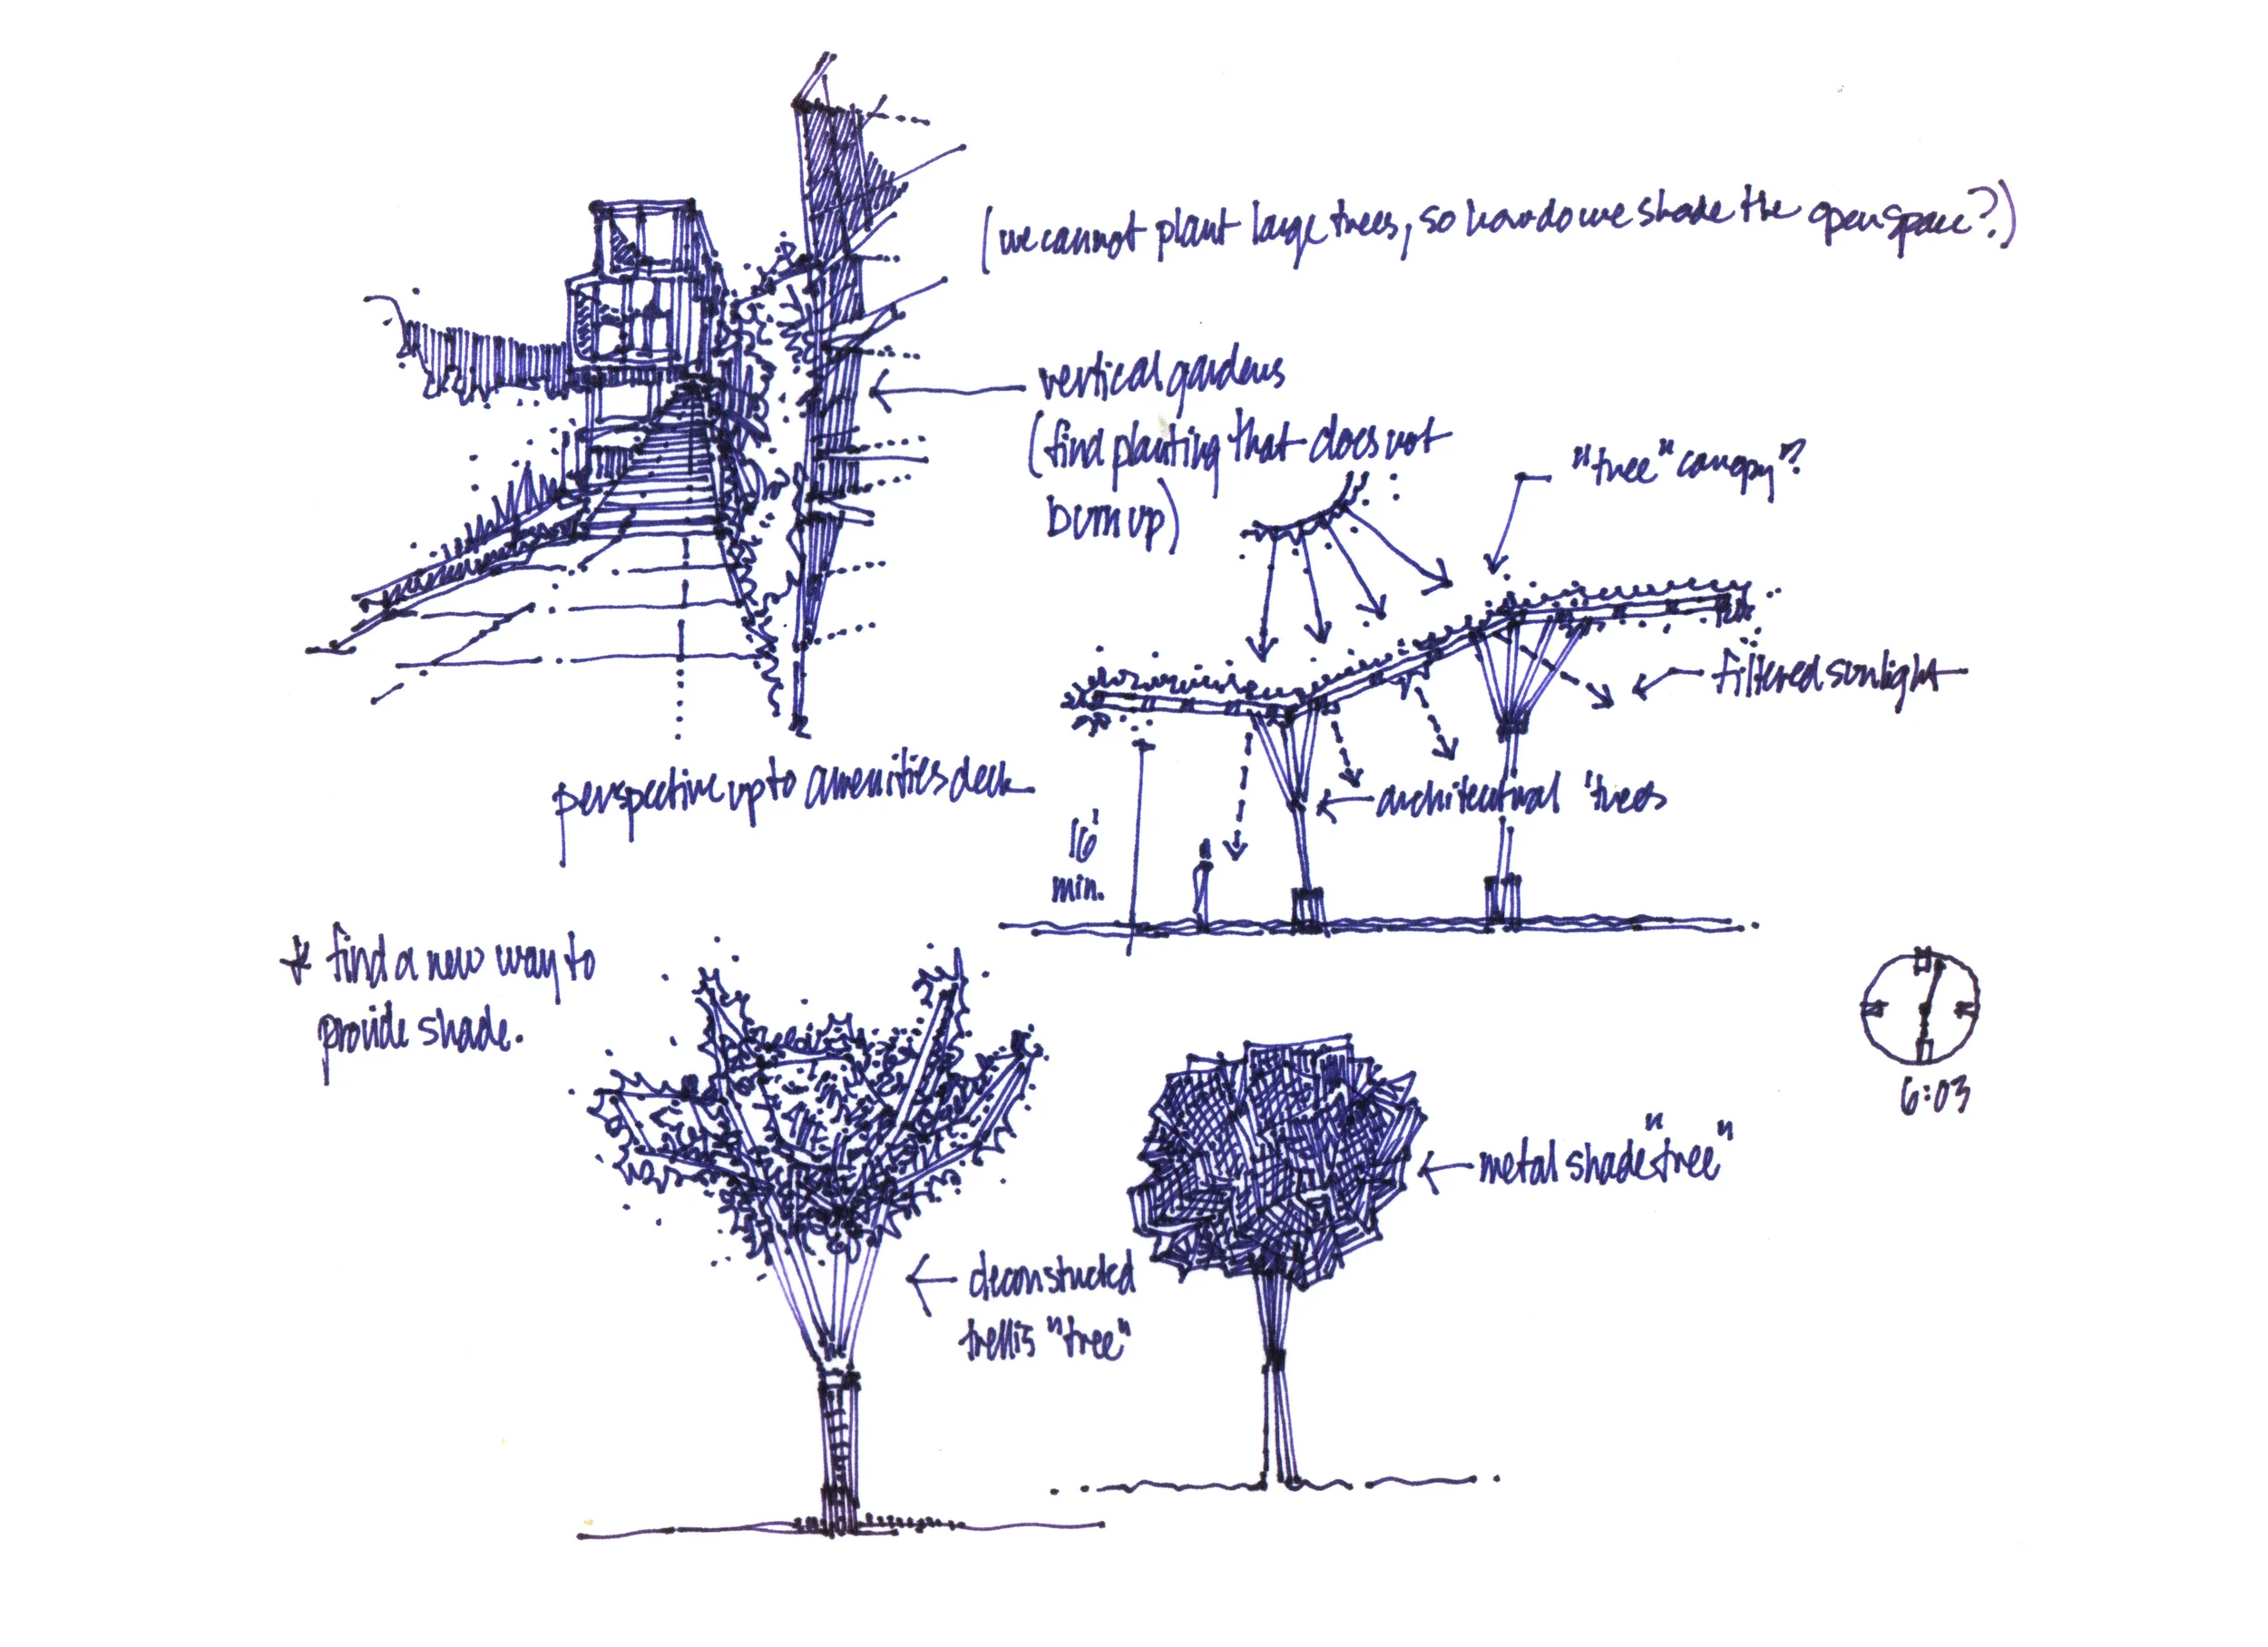 (we cannot plant large trees, so how do we shade the open space?)
vertical gardens
(find planting that does not
burn up)
"tree" canopy"?
filtered sunlight
architectural "trees
16'
min.
perspective up to amenities deck
* find a new way to
provide shade.
6:03
metal shade "tree"
deconstucted
trellis "tree"